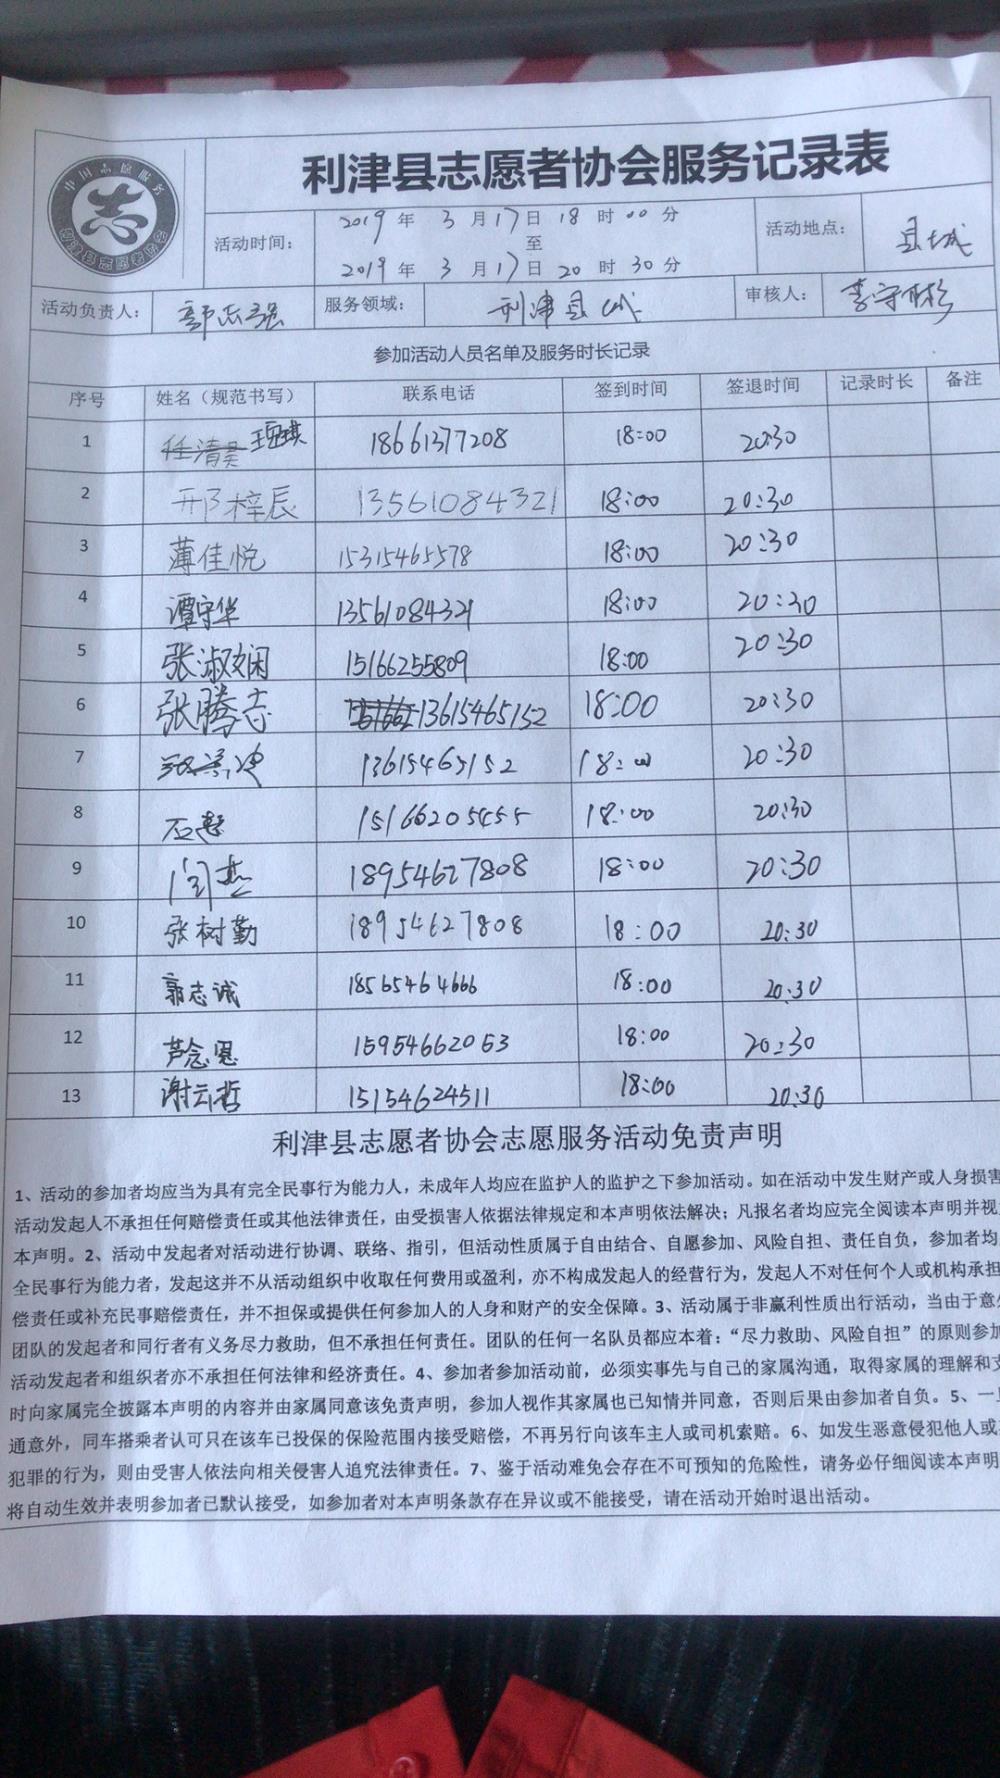 中国志愿服务
志
利津县志愿者协会服务记录表
活动时间： 2019 年 3 月 17 日 18 时 00 分
至
2019 年 3 月 17 日 20 时 30 分
活动地点： 县城
活动负责人： 郭志强 服务领域： 利津县城 审核人： 李守彬
参加活动人员名单及服务时长记录
序号 姓名（规范书写） 联系电话 签到时间 签退时间 记录时长 备注
1 18661377208 18:00 20:30
2 邢梓辰 13561084321 18:00 20:30
3 薄佳悦 15315465578 18:00 20:30
4 谭守华 13561084321 18:00 20:30
5 张淑娴 15166255809 18:00 20:30
6 张腾志 13615465152 18:00 20:30
7 13615465152 18:00 20:30
8 石慧 15166205455 18:00 20:30
9 闫燕 18954627808 18:00 20:30
10 张树勤 18954627808 18:00 20:30
11 郭志诚 18565464666 18:00 20:30
12 芦念恩 15954662053 18:00 20:30
13 谢云哲 15154624511 18:00 20:30
利津县志愿者协会志愿服务活动免责声明
1、活动的参加者均应当为具有完全民事行为能力人，未成年人均应在监护人的监护之下参加活动。如在活动中发生财产或人身损害
活动发起人不承担任何赔偿责任或其他法律责任，由受损害人依据法律规定和本声明依法解决；凡报名者均应完全阅读本声明并视
本声明。2、活动中发起者对活动进行协调、联络、指引，但活动性质属于自由结合、自愿参加、风险自担、责任自负，参加者均
全民事行为能力者，发起这并不从活动组织中收取任何费用或盈利，亦不构成发起人的经营行为，发起人不对任何个人或机构承担
偿责任或补充民事赔偿责任，并不担保或提供任何参加人的人身和财产的安全保障。3、活动属于非赢利性质出行活动，当由于意外
团队的发起者和同行者有义务尽力救助，但不承担任何责任。团队的任何一名队员都应本着：“尽力救助、风险自担”的原则参加
活动发起者和组织者亦不承担任何法律和经济责任。4、参加者参加活动前，必须实事先与自己的家属沟通，取得家属的理解和支
时向家属完全披露本声明的内容并由家属同意该免责声明，参加人视作其家属也已知情并同意，否则后果由参加者自负。5、一旦
通意外，同车搭乘者认可只在该车已投保的保险范围内接受赔偿，不再另行向该车主人或司机索赔。6、如发生恶意侵犯他人或
犯罪的行为，则由受害人依法向相关侵害人追究法律责任。7、鉴于活动难免会存在不可预知的危险性，请务必仔细阅读本声明
将自动生效并表明参加者已默认接受，如参加者对本声明条款存在异议或不能接受，请在活动开始时退出活动。